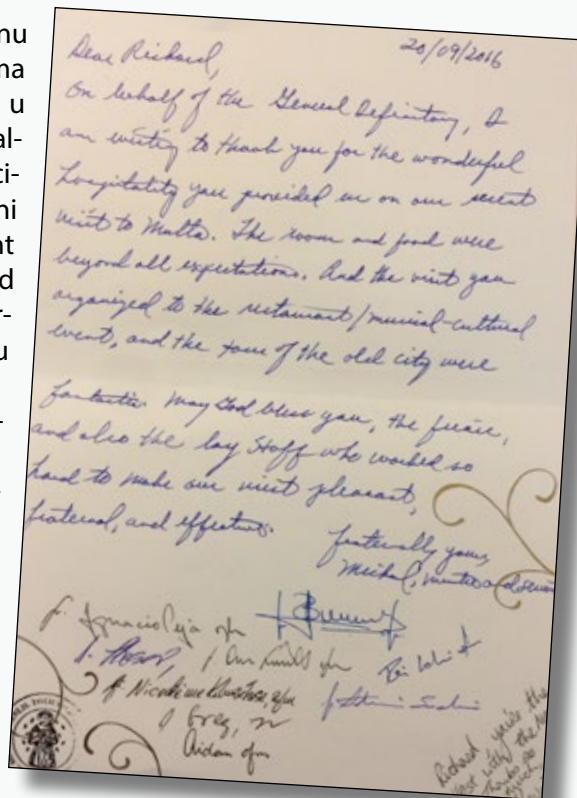 mu
ma
u
al-
ci-
ni
nt
d
r-
u
-
20/09/2016
Dear Richard,
On behalf of the General Definitory, I
am writing to thank you for the wonderful
hospitality you provided us on our recent
visit to Malta. The room and food were
beyond all expectations. And the visit you
organized to the restaurant/musical-cultural
event, and the tour of the old city were
fantastic. May God bless you, the friars,
and also the lay staff who worked so
hard to make our visit pleasant,
fraternal, and effective.
fraternally yours,
Michael, minister and servant
f. Ignacio Ceja ofm
f. Nicodème ofm
Greg,
Aidan ofm
Richard you're the
best with the
Thanks so
much